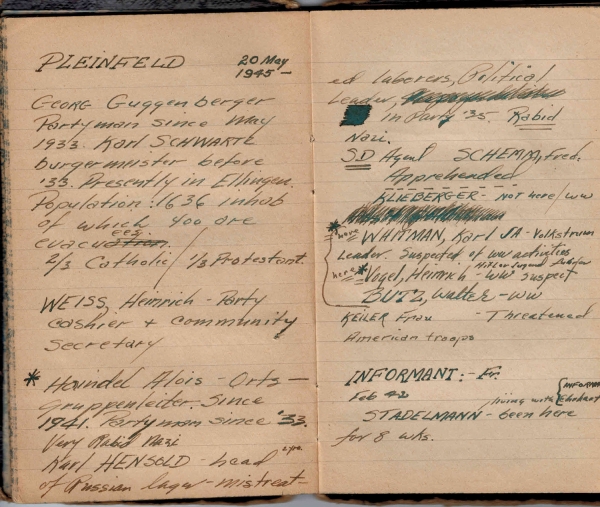 PLEINFELD 20 May
1945 -
GEORG Guggenberger
Party man since May
1933. Karl SCHWARTZ
burgermeister before
'33. Presently in Ellingen.
Population: 1636 inhab
of which 400 are
evacuees.
2/3 Catholic / 1/3 Protestant.
WEISS, Heinrich - Party
Cashier + community
Secretary
* Haindel Alois - Orts-
gruppenleiter. Since
1941. Party man since '33.
Very Rabid Nazi
Karl HENSOLD - head
of Russian lager - mistreat-
ed laborers, Political
Leader,
in Party '35. Rabid
Nazi.
S.D Agent SCHEMM, Fred.
Apprehended
KLIEBERGER - not here / WW
* here WHITMAN, Karl SA - Volkstrum
Leader. Suspected of WW activities
here * Vogel, Heinrich - WW Suspect
BUTZ, Walter - WW
KEILER Frau - Threatened
American troops
INFORMANT: - Fr.
Feb 42 living with Ehrhart
STADELMANN - been here
for 8 wks.